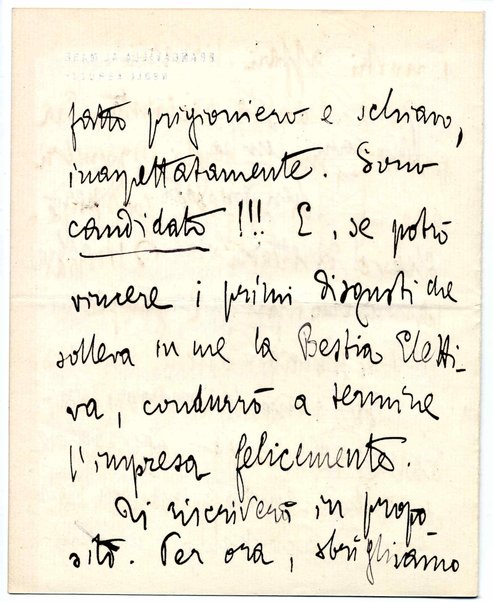 fatto prigioniero e schiavo,
inaspettatamente. Sono
candidato !!! E, se potrò
vincere i primi disgusti che
solleva in me la Bestia Eletti-
va, condurrò a termine
l'impresa felicemente.
Ti riscriverò in propo
sito. Per ora, sbrighiamo